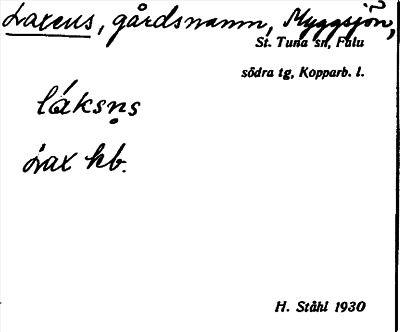 Laxens, gårdsnamn, Myggsjön,
St. Tuna sn, Falu
södra tg, Kopparb. l.
láksn̥s
Lax hb.
H. Ståhl 1930